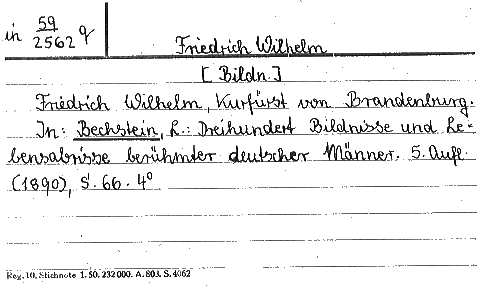 in 59/2562 q
Friedrich Wilhelm
[Bildn.]
Friedrich Wilhelm, Kurfürst von Brandenburg.
In: Bechstein, L.: Dreihundert Bildnisse und Le=
bensabrisse berühmter deutscher Männer. 5. Aufl.
(1890), S. 66. 4°
Reg. 10, Stichnote 1. 50. 232000. A. 803. S. 4062